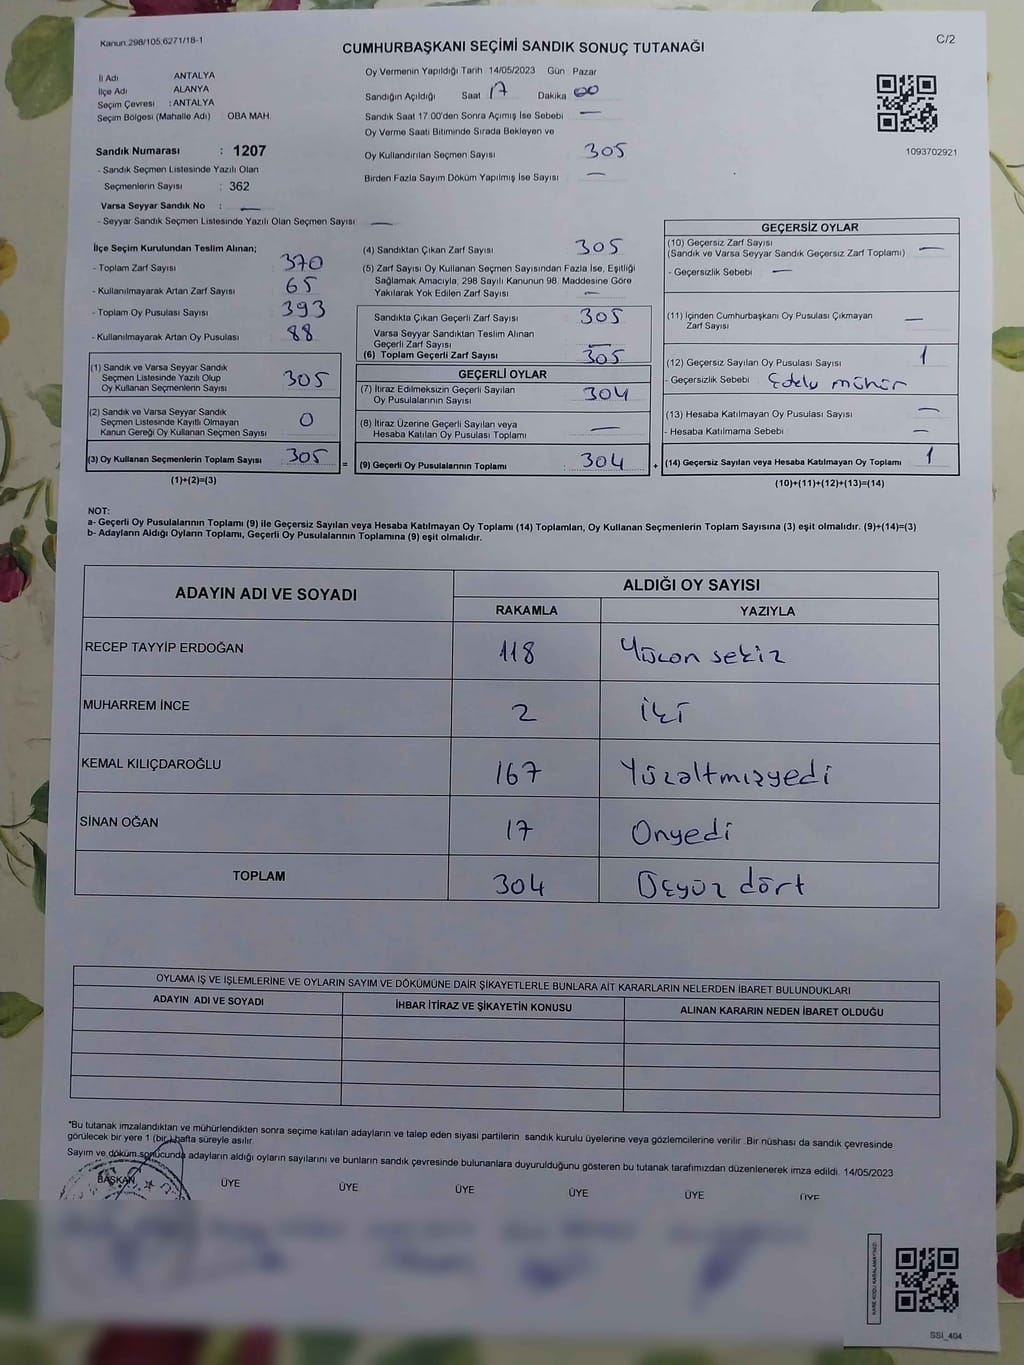 Kanun.298/105,6271/18-1
C/2
CUMHURBAŞKANI SEÇİMİ SANDIK SONUÇ TUTANAĞI
İl Adı ANTALYA
İlçe Adı ALANYA
Seçim Çevresi : ANTALYA
Seçim Bölgesi (Mahalle Adı) : OBA MAH
Sandık Numarası : 1207
- Sandık Seçmen Listesinde Yazılı Olan
Seçmenlerin Sayısı : 362
Varsa Seyyar Sandık No : —
- Seyyar Sandık Seçmen Listesinde Yazılı Olan Seçmen Sayısı —
Oy Vermenin Yapıldığı Tarih 14/05/2023 Gün Pazar
Sandığın Açıldığı Saat 17 Dakika 00
Sandık Saat 17:00'den Sonra Açımış İse Sebebi —
Oy Verme Saati Bitiminde Sırada Bekleyen ve
Oy Kullandırılan Seçmen Sayısı 305
Birden Fazla Sayım Döküm Yapılmış İse Sayısı —
1093702921
İlçe Seçim Kurulundan Teslim Alınan;
- Toplam Zarf Sayısı 370
- Kullanılmayarak Artan Zarf Sayısı 65
- Toplam Oy Pusulası Sayısı 393
- Kullanılmayarak Artan Oy Pusulası 88
(1) Sandık ve Varsa Seyyar Sandık
Seçmen Listesinde Yazılı Olup
Oy Kullanan Seçmenlerin Sayısı 305
(2) Sandık ve Varsa Seyyar Sandık
Seçmen Listesinde Kayıtlı Olmayan
Kanun Gereği Oy Kullanan Seçmen Sayısı 0
(3) Oy Kullanan Seçmenlerin Toplam Sayısı 305
(1)+(2)=(3)
(4) Sandıktan Çıkan Zarf Sayısı 305
(5) Zarf Sayısı Oy Kullanan Seçmen Sayısından Fazla İse, Eşitliği
Sağlamak Amacıyla; 298 Sayılı Kanunun 98. Maddesine Göre
Yakılarak Yok Edilen Zarf Sayısı —
Sandıkta Çıkan Geçerli Zarf Sayısı 305
Varsa Seyyar Sandıktan Teslim Alınan
Geçerli Zarf Sayısı —
(6) Toplam Geçerli Zarf Sayısı 305
GEÇERLİ OYLAR
(7) İtiraz Edilmeksizin Geçerli Sayılan
Oy Pusulalarının Sayısı 304
(8) İtiraz Üzerine Geçerli Sayılan veya
Hesaba Katılan Oy Pusulası Toplamı —
= (9) Geçerli Oy Pusulalarının Toplamı : 304 +
GEÇERSİZ OYLAR
(10) Geçersiz Zarf Sayısı
(Sandık ve Varsa Seyyar Sandık Geçersiz Zarf Toplamı) —
- Geçersizlik Sebebi —
(11) İçinden Cumhurbaşkanı Oy Pusulası Çıkmayan
Zarf Sayısı —
(12) Geçersiz Sayılan Oy Pusulası Sayısı 1
- Geçersizlik Sebebi : mühür
(13) Hesaba Katılmayan Oy Pusulası Sayısı —
- Hesaba Katılmama Sebebi —
(14) Geçersiz Sayılan veya Hesaba Katılmayan Oy Toplamı 1
(10)+(11)+(12)+(13)=(14)
NOT:
a- Geçerli Oy Pusulalarının Toplamı (9) ile Geçersiz Sayılan veya Hesaba Katılmayan Oy Toplamı (14) Toplamları, Oy Kullanan Seçmenlerin Toplam Sayısına (3) eşit olmalıdır. (9)+(14)=(3)
b- Adayların Aldığı Oyların Toplamı, Geçerli Oy Pusulalarının Toplamına (9) eşit olmalıdır.
ADAYIN ADI VE SOYADI
ALDIĞI OY SAYISI
RAKAMLA YAZIYLA
RECEP TAYYİP ERDOĞAN 118 Yüzon sekiz
MUHARREM İNCE 2 İki
KEMAL KILIÇDAROĞLU 167 Yüzaltmışyedi
SİNAN OĞAN 17 Onyedi
TOPLAM 304 Üçyüz dört
OYLAMA İŞ VE İŞLEMLERİNE VE OYLARIN SAYIM VE DÖKÜMÜNE DAİR ŞİKAYETLERLE BUNLARA AİT KARARLARIN NELERDEN İBARET BULUNDUKLARI
ADAYIN ADI VE SOYADI İHBAR İTİRAZ VE ŞİKAYETİN KONUSU ALINAN KARARIN NEDEN İBARET OLDUĞU
*Bu tutanak imzalandıktan ve mühürlendikten sonra seçime katılan adayların ve talep eden siyasi partilerin sandık kurulu üyelerine veya gözlemcilerine verilir .Bir nüshası da sandık çevresinde
görülecek bir yere 1 (bir ) hafta süreyle asılır.
Sayım ve döküm sonucunda adayların aldığı oyların sayılarını ve bunların sandık çevresinde bulunanlara duyurulduğunu gösteren bu tutanak tarafımızdan düzenlenerek imza edildi. 14/05/2023
BAŞKAN ÜYE ÜYE ÜYE ÜYE ÜYE ÜYE
KARE KODU KARALAMAYINIZ!
SSI_404